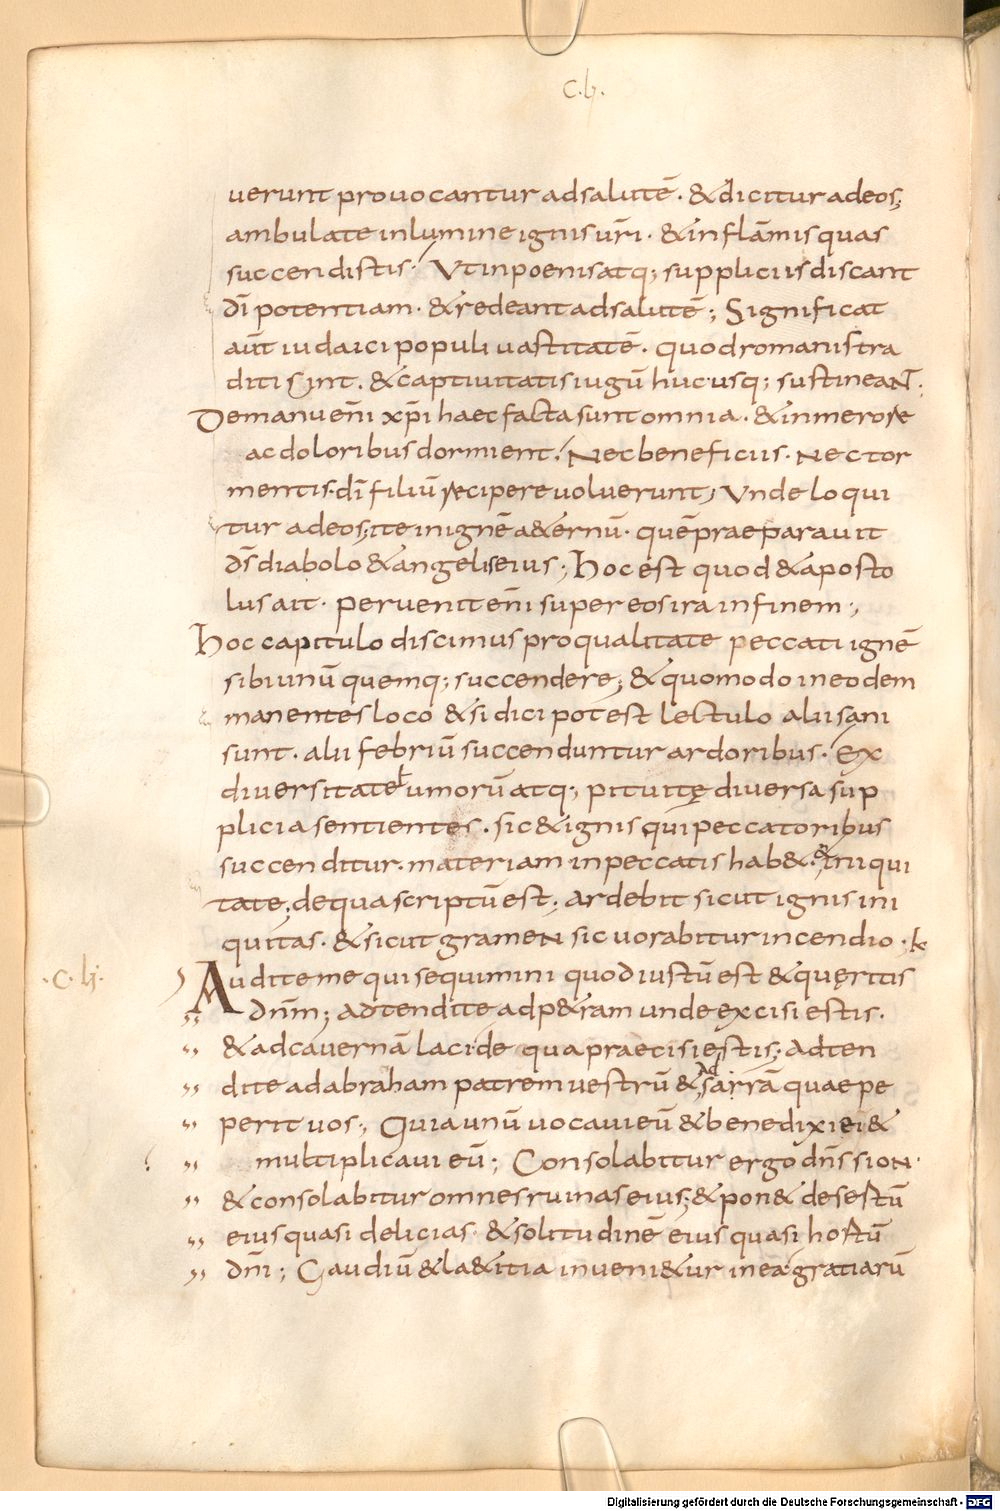 c.li.
uerunt prouocantur adsalutē. & dicitur adeos;
ambulate inlumine ignis ur̄i. & inflāmis quas
succendistis. Vt inpoenis atq; suppliciis discant
dī potentiam. & redeant adsalutē; Significat
aūt iudaici populi uastitatē. quod romanis tra
diti sint. & captiuitatis iugū hucusq; sustineant.
De manu eni xp̄i haec facta sunt omnia. & in merore
ac doloribus dormient. Nec beneficiis. nec tor
mentis dī filiū recipere uoluerunt; Vnde loqui
tur adeos; ite in ignē a&ernū. quē praeparauit
ds̄ diabolo & angelis eius; hoc est quod & aposto
lus ait. peruenit eni super eos ira in finem;
hoc capitulo discimus pro qualitate peccati ignē
sibi unū quemq; succendere; & quomodo in eodem
manentes loco & si dici potest lectulo alii sani
sunt. alii febriū succenduntur ardoribus. Ex
diuersitate humorū atq; pituitę diuersa sup
plicia sentientes. sic & ignis qui peccatoribus
succenditur. materiam inpeccatis hab&. & iniqui
tate. de qua scriptū est. ardebit sicut ignis ini
quitas. & sicut gramen sic uorabitur incendio.
.c.li.
Audite me qui sequimini quod iustū est & quęritis
dn̄m; adtendite ad p&ram unde excisi estis.
& ad cauernā laci de qua praecisi estis; adten
dite ad abraham patrem uestrū & ad sarrā quae pe
perit uos; Quia unū uocaui eū & benedixi ei &
multiplicaui eū; Consolabitur ergo dn̄s sion.
& consolabitur omnes ruinas eius; & pon& desertū
eius quasi delicias. & solitudinē eius quasi hortū
dn̄i; Gaudiū & la&itia inueni&ur in ea gratiarū
Digitalisierung gefördert durch die Deutsche Forschungsgemeinschaft - DFG